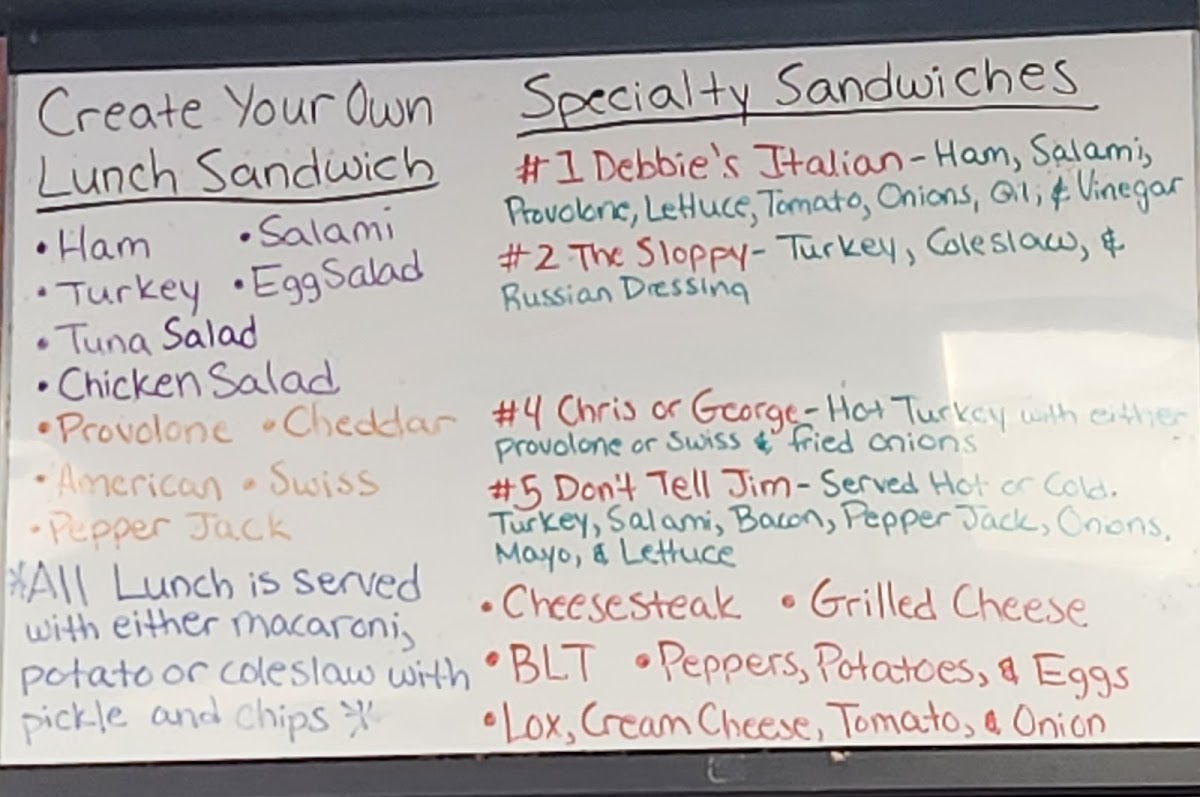 Create Your Own
Lunch Sandwich
• Ham • Salami
• Turkey • Egg Salad
• Tuna Salad
• Chicken Salad
• Provolone • Cheddar
• American • Swiss
• Pepper Jack
*All Lunch is served
with either macaroni,
potato or coleslaw with
pickle and chips *
Specialty Sandwiches
#1 Debbie's Italian - Ham, Salami,
Provolone, Lettuce, Tomato, Onions, Oil, & Vinegar
#2 The Sloppy - Turkey, Coleslaw, &
Russian Dressing
#4 Chris or George - Hot Turkey with either
provolone or Swiss & fried onions
#5 Don't Tell Jim - Served Hot or Cold.
Turkey, Salami, Bacon, Pepper Jack, Onions,
Mayo, & Lettuce
• Cheesesteak • Grilled Cheese
• BLT • Peppers, Potatoes, & Eggs
• Lox, Cream Cheese, Tomato, & Onion